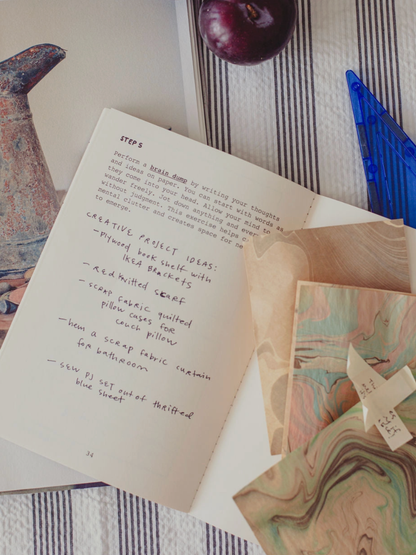 STEP 5
Perform a brain dump by writing your thoughts
and ideas on paper. You can start with words as
they come into your head. Allow your mind to
wander freely. Jot down anything and
without judgment. This exercise helps
mental clutter and creates space for
to emerge.
CREATIVE PROJECT IDEAS:
- Plywood book shelf with
IKEA Brackets
- Red knitted SCARF
- Scrap fabric quilted
pillow cases for
couch pillow
- hem a scrap fabric curtain
for bathroom
- sew PJ set out of thrifted
blue sheet
34